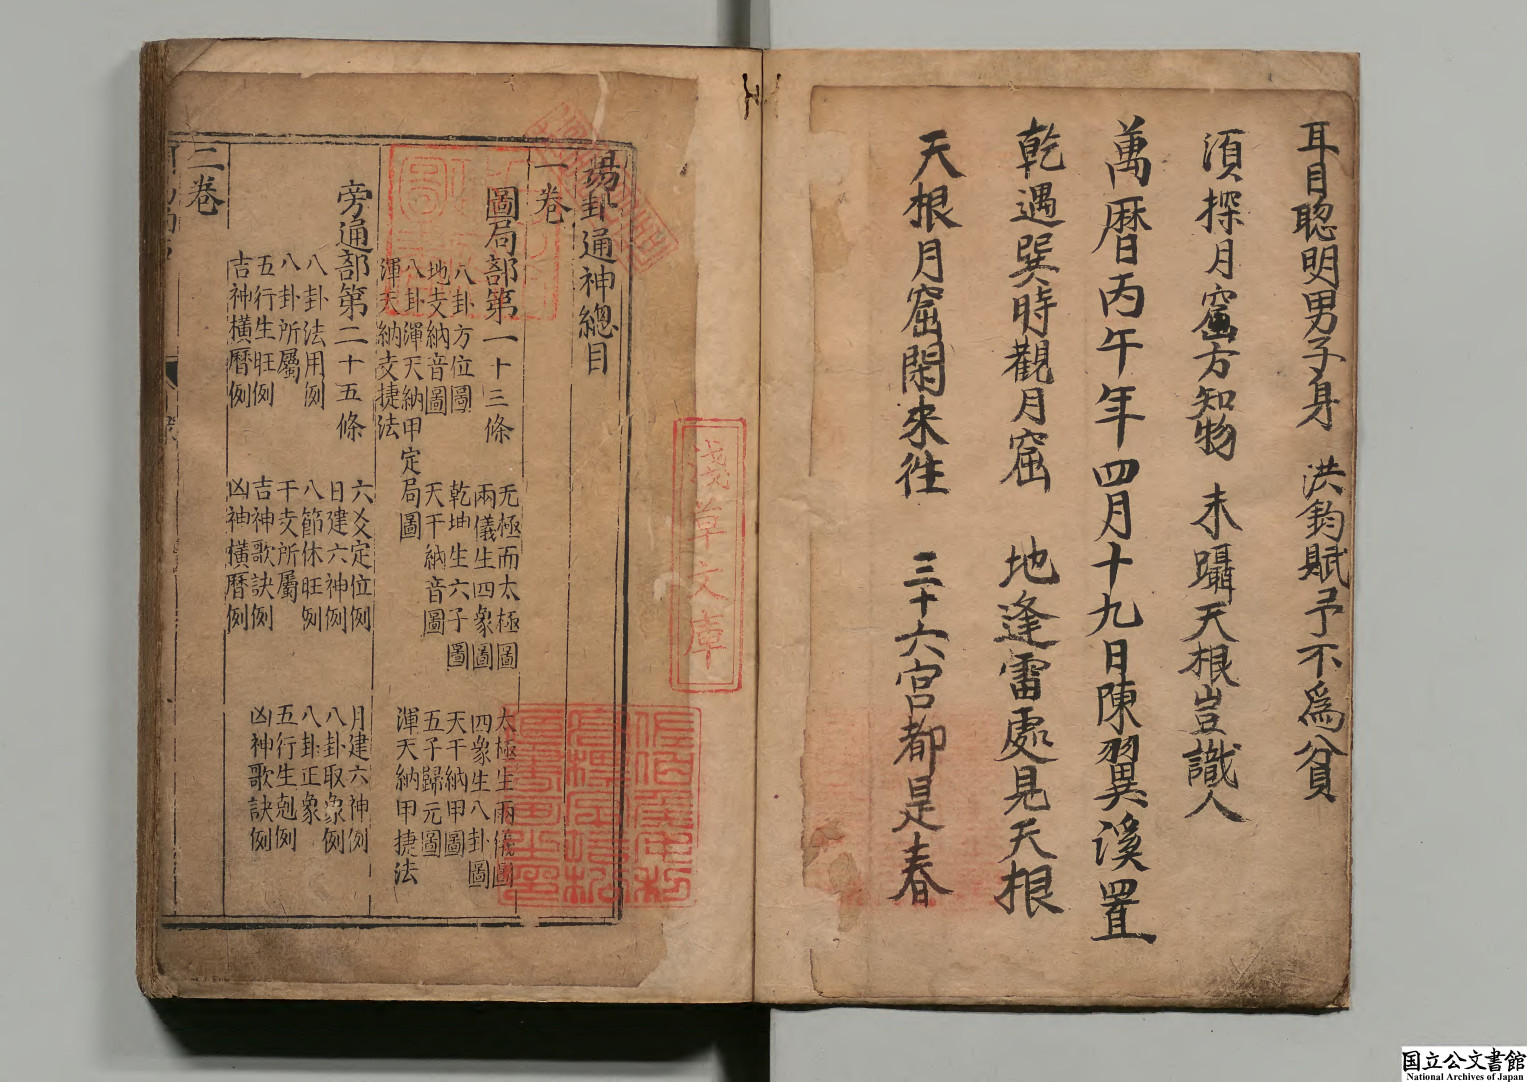 耳目聰明男子身　洪鈞賦予不爲貧
須探月窟方知物　未躡天根豈識人
萬曆丙午年四月十九日陳翼溪置
乾遇巽時觀月窟　地逢雷處見天根
天根月窟閑來往　三十六宮都是春
淺草文庫
易卦通神總目
一卷
圖局部第一十三條
无極而太極圖
太極生兩儀圖
兩儀生四象圖
四象生八卦圖
八卦方位圖
乾坤生六子圖
天干納甲圖
地支納音圖
天干納音圖
五子歸元圖
八卦渾天納甲定局圖
渾天納甲捷法
渾天納支捷法
旁通部第二十五條
六爻定位例
月建六神例
日建六神例
八卦取象例
八卦法用例
八節休旺例
八卦正象
八卦所屬
干支所屬
五行生剋例
五行生旺例
吉神歌訣例
凶神歌訣例
吉神橫曆例
凶神橫曆例
二卷
国立公文書館
National Archives of Japan